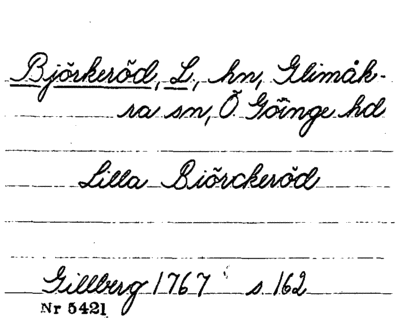 Björkeröd, L., hn, Glimåk-
ra sn, Ö. Göinge hd
Lilla Biörckeröd
Gillberg 1767 s. 162
Nr 5421